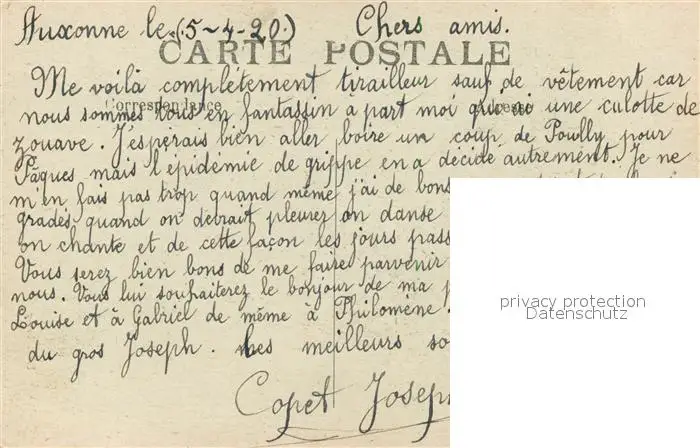 Auxonne le (5-4-20) Chers amis.
CARTE POSTALE
Me voilà complétement tirailleur sauf de vêtement car
Correspondance Adresse
nous sommes tous en fantassin à part moi qui ai une culotte de
zouave. J'espérais bien aller boire un coup de Pouilly pour
Pâques mais l'épidémie de grippe en a décidé autrement. Je ne
m'en fais pas trop quand même j'ai de bons
gradés quand on devrait pleurer on danse
on chante et de cette façon les jours pass
Vous serez bien bons de me faire parvenir
nous. Vous lui souhaiterez le bonjour de ma p
Louise et à Gabriel de même à Philomène.
du gros Joseph. Les meilleurs so
Copet Joseph
privacy protection
Datenschutz